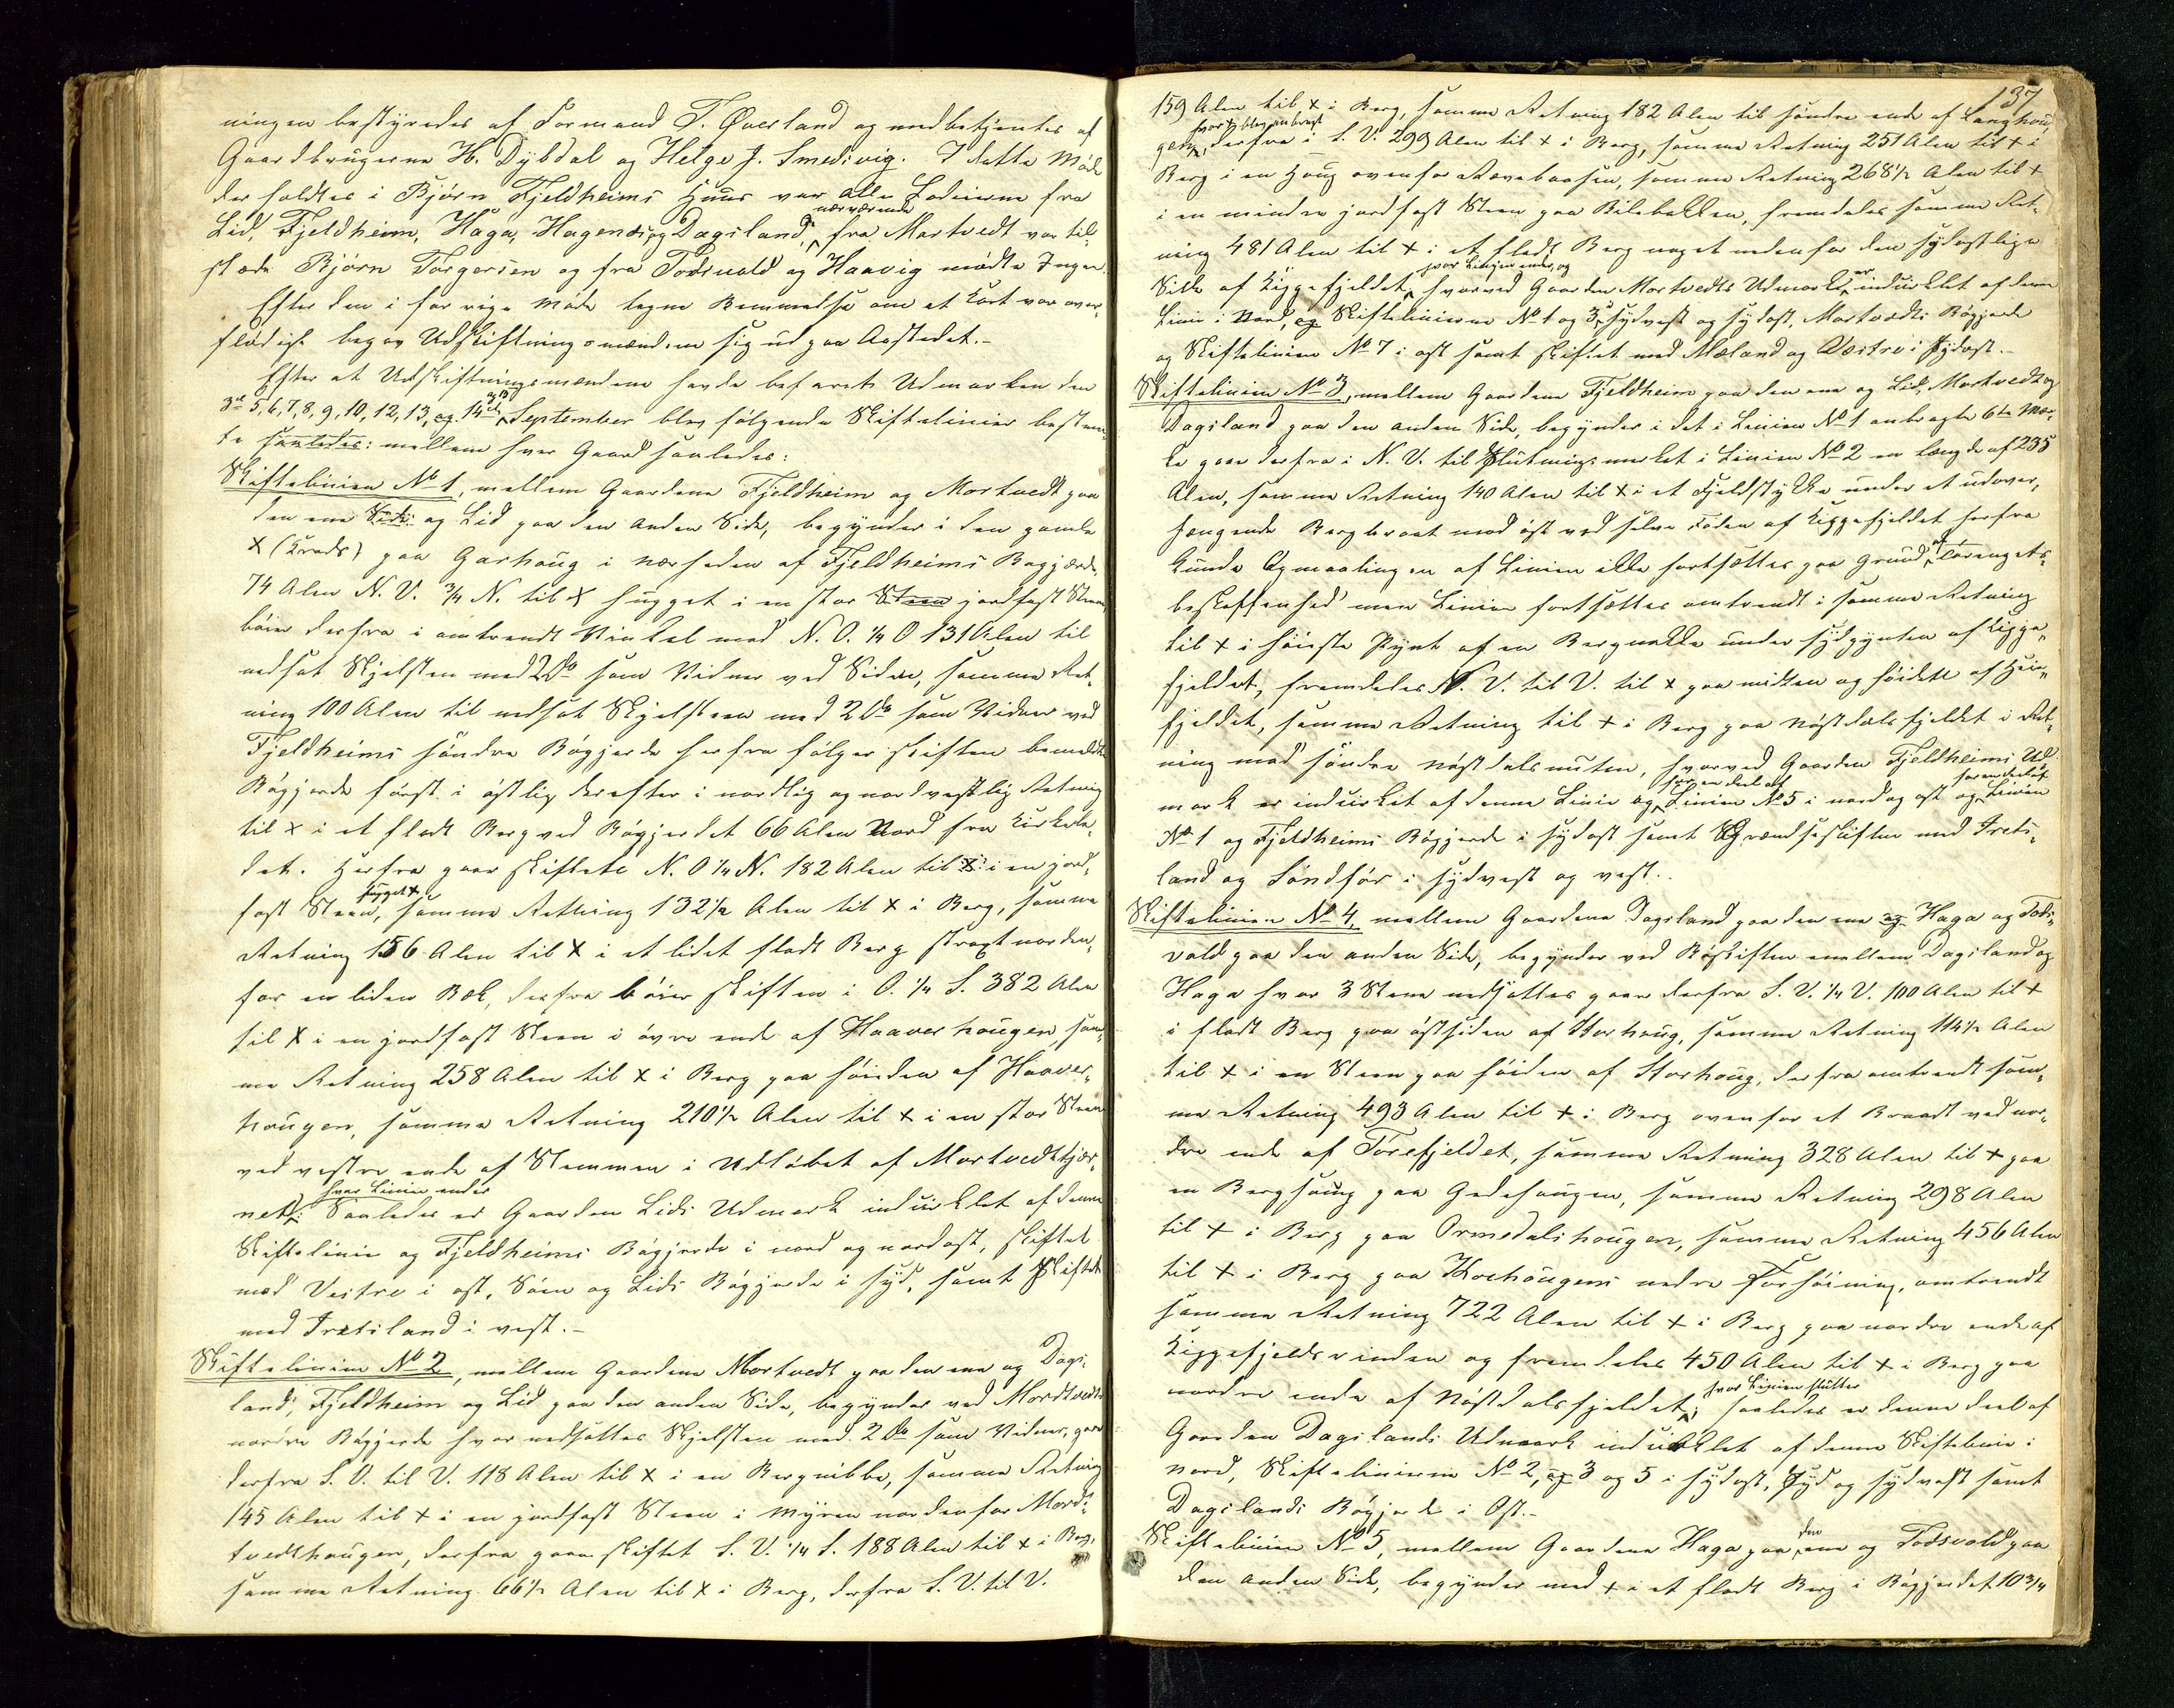 ningen bestyredes af Formand T. Qverland og medbetjentes af
Gaardbrugerne H. Dybdal og Helge J. Smedsvig. I dette Møde
der holdtes i Bjørn Fjeldheims Huus var alle Lodeierne fra
nærværende
Lid, Fjeldheim, Haga, Hagenæs, og Dagsland, fra Mortvedt var til-
stæde Bjørn Torgersen og fra Todsvold og Haavig mødte Ingen.
Efter den i forrige Møde tagne Bemmelse om et Kart var over-
flødigt begav Udskiftningsmændene sig ud paa Aastedet.-
Efter at Udskiftningsmændene havde befaret Udmarken den
og 15
3die 5, 6, 7, 8, 9, 10, 12, 13, og 14de September blev følgende Skiftelinier bestem-
te saaledes: mellem hver Gaard saaledes:
Skiftelinien No 1, mellem Gaardene Fjeldheim og Mortvedt paa
den ene Side og Lid paa den anden Side, begynder i den gamle
X (Krods) paa Garhaug i nærheden af Fjeldheims Bøgjærde,
74 Alen N. V. 3/4 N. til X hugget i en stor Steen jordfast Steen,
bøier derfra i omtrendt Vinkel mod N. O. 1/4 O 131 Alen til
nedsat Skjelsten med 2 Do som Vidner ved Siden, samme Ret-
ning 100 Alen til nedsat Skjelsteen med 2 Do som Vidner ved
Fjeldheims søndre Bøgjerde herfra følger skiften bemeldte
Bøgjerde først i østlig derefter i nordlig og nordvestlig Retning
til X i et fladt Berg ved Bøgjerdet 66 Alen Nord fra Kirkele-
det. Herfra gaar skiftete N. O 1/4 N. 182 Alen til X i en jord-
hugget X
fast Steen, samme Retning 132 1/2 Alen til X i Berg, samme
Retning 156 Alen til X i et lidet fladt Berg stragt norden-
for en liden Bæk, derfra bøier skiften i O. 1/4 S. 382 Alen
til X i en jordfast Steen i øvre ende af Haaverhougen, sam-
me Retning 258 Alen til X i Berg paa høiden af Haaver-
hougen, samme Retning 210 1/2 Alen til X i en stor Steen
ved vestre ende af Stemmen i Udløbet af Mortvedttjær-
hvor Linien ender
net. Saaledes er Gaarden Lids Udmark indcirklet af denne
Skiftelinie og Fjeldheims Bøgjerde i nord og nordost, skiftet
med Vestre i ost, Søen og Lids Bøgjerde i syd, samt Skiftet
med Fretsland i vest.-
Skiftelinien No 2, mellem Gaardene Mortvedt paa den ene og Dags-
land, Fjeldheim og Lid paa den anden Side, begynder ved Mordtvedts
nordre Bøgjerde hvor nedsattes Skjelsten med 2 Do som Vidner, gaar
derfra S. V. til V. 118 Alen til X i en Bergnibbe, samme Retning
145 Alen til X i en jordfast Steen i Myren nordenfor Mord-
tvedthougen, derfra gaar skiftet S. V. 1/4 S. 188 Alen til X i Berg,
samme Retning 66 1/2 Alen til X i Berg, derfra S. V. til V.
137
159 Alen til X i Berg, samme Retning 182 Alen til søndre ende af Langhou-
hvor X blev anbragt
gen, derfra i S. V. 299 Alen til X i Berg, samme Retning 251 Alen til X i
Berg i en Houg ovenfor Rævebaasen, samme Retning 268 1/2 Alen til X
i en mindre jordfast Steen paa Bilebakken, fremdeles samme Ret-
ning 481 Alen til X i et fladt Berg noget nedenfor den sydostlige
hvor Linjen ender, og
Side af Kiggefjeldet, hvorved Gaarden Mortvedts Udmark er indcirklet af denne
Linie i Nord, og Skiftelinierne No 1 og 3 i sydvest og sydost, Mortvedts Bøgjerde
og Skiftelinien No 7 i ost samt skiftet med Mæland og Vestre i sydost.
Skiftelinien No 3, mellem Gaardene Fjeldheim paa den ene og Lid, Mortvedt og
Dagsland paa den anden Side, begynder i det i Linien No 1 anbragte 6te Mær-
ke gaar derfra i N. V. til Slutningsmerket i Linien No 2 en længde af 235
Alen, samme Retning 140 Alen til X i et Fjeldstykke under et udover-
hængende Bergbraat mod øst ved selve Foden af Kiggefjeldet herfra
kunde Opmaalingen af Linien ikke fortsættes paa grund af Terrengets
beskaffenhed men Linien fortsættes omtrendt i samme Retning
til X i høieste Pynt af en Bergnakke under sydpynten af Kigge-
fjeldet, fremdeles N. V. til V. til X paa midten og høidste af Hein-
fjeldet, samme Retning til X i Berg paa Nøstdalsfjeldet i Ret-
ning mod søndre Nøstdalsnuten, hvorved Gaarden Fjeldheims Ud-
for en deel af for en deel af
mark er indcirklet af denne Linie og Linien No 5 i nord og ost og Linien
No 1 og Fjeldheims Bøgjerde i sydost samt Grændseskiften med Frets-
land og Sondfør i sydvest og vest.
Skiftelinien No 4, mellem Gaardene Dagsland paa den ene og Haga og Tods-
vold paa den anden Side, begynder ved Bøskiften mellem Dagsland og
Haga hvor 3 Stene nedsattes gaar derfra S. V. 1/4 V. 100 Alen til X
i fladt Berg paa østsiden af Storhoug, samme Retning 114 1/2 Alen
til X i en Steen paa høiden af Storhoug, derfra omtrendt sam-
me Retning 493 Alen til X i Berg ovenfor et Braadt ved nor-
dre ende af Torefjeldet, samme Retning 328 Alen til X paa
en Berghoug paa Gedehougen, samme Retning 298 Alen
til X i Berg paa Ormedalshougen, samme Retning 456 Alen
til X i Berg paa Korhougens nedre Forhøining, omtrendt
samme Retning 722 Alen til X i Berg paa nordre ende af
Kiggefjeldsrinden og fremdeles 450 Alen til X i Berg paa
hvor Linien slutter
nordre ende af Nøstdalsfjeldet; saaledes er denne deel af
Gaarden Dagslands Udmark indcirklet af denne Skiftelinie i
Nord, Skiftelinierne No 2, og 3 og 5 i sydost, Syd og sydvest samt
Dagslands Bøgjerde i Ost.-
den
Skiftelinien No 5, mellem Gaardene Haga paa ene og Todsvold paa
den anden Side, begynder med X i et fladt Berg i Bøgjerdet 10 3/4